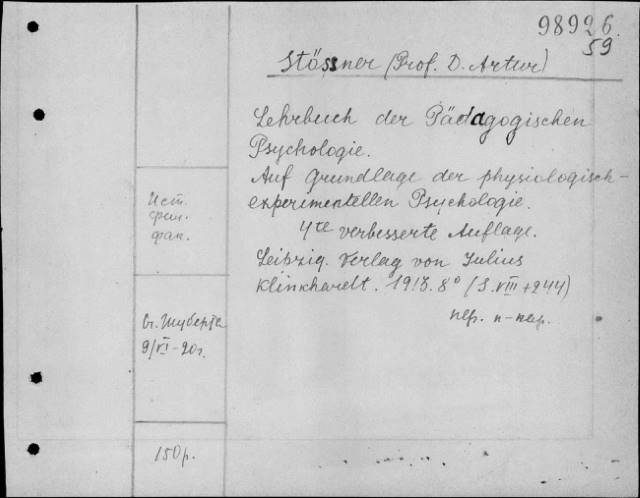 98926
59
Stössner (Prof. D. Artur)
Lehrbuch der Pädagogischen
Psychologie.
Auf Grundlage der physiologisch-
experimentellen Psychologie.
4te verbesserte Auflage.
Leipzig. Verlag von Julius
Klinkhardt. 1918. 8° (S. VIII + 244)
Ист.
фил.
фак.
9/VI-20г.
150р.